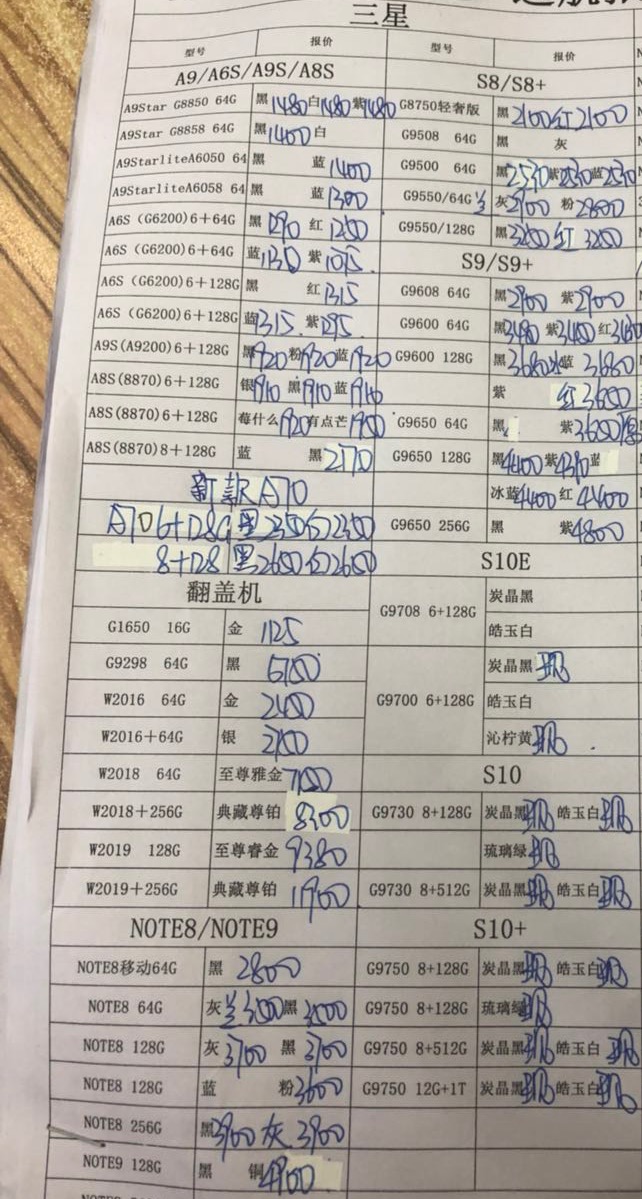 三星
型号 报价 型号 报价
A9/A6S/A9S/A8S
A9Star G8850 64G 黑1480白1480紫1480
A9Star G8858 64G 黑1400白
A9StarliteA6050 64 黑 蓝1400
A9StarliteA6058 64 黑 蓝1300
A6S (G6200)6+64G 黑1290 红1250
A6S (G6200)6+64G 蓝1130 紫1075
A6S (G6200)6+128G 黑 红1315
A6S (G6200)6+128G 蓝1315 紫1295
A9S(A9200)6+128G 黑1920粉1920蓝1920
A8S(8870)6+128G 银1910 黑1910 蓝1910
A8S(8870)6+128G 莓什么1920有点芒1900
A8S(8870)8+128G 蓝 黑2170
新款A70
A70 6+128G 黑2350 幻2350
8+128 黑2650 幻2650
翻盖机
G1650 16G 金 1125
G9298 64G 黑 6700
W2016 64G 金 2450
W2016+64G 银 2700
W2018 64G 至尊雅金7100
W2018+256G 典藏尊铂 8300
W2019 128G 至尊睿金9380
W2019+256G 典藏尊铂 11900
NOTE8/NOTE9
NOTE8移动64G 黑 2800
NOTE8 64G 灰 兰3500黑 3500
NOTE8 128G 灰 3700 黑 3700
NOTE8 128G 蓝 粉3600
NOTE8 256G 黑3900 灰 3900
NOTE9 128G 黑 铜4900
S8/S8+
G8750轻奢版 黑2100红2100
G9508 64G 黑 灰
G9500 64G 黑2530紫2530蓝2530
G9550/64G 兰 灰2900 粉2800
G9550/128G 黑3200 红 3200
S9/S9+
G9608 64G 黑2900 紫2900
G9600 64G 黑3480 紫3450 红
G9600 128G 黑3680冰蓝 3680
紫 红3650
G9650 64G 黑 紫3680
G9650 128G 黑4400紫4390蓝
冰蓝4400 红 4400
G9650 256G 黑 紫4800
S10E
G9708 6+128G 炭晶黑
皓玉白
G9700 6+128G 炭晶黑
皓玉白
沁柠黄
S10
G9730 8+128G 炭晶黑 皓玉白
琉璃绿
G9730 8+512G 炭晶黑 皓玉白
S10+
G9750 8+128G 炭晶黑 皓玉白
G9750 8+128G 琉璃绿
G9750 8+512G 炭晶黑 皓玉白
G9750 12G+1T 炭晶黑 皓玉白